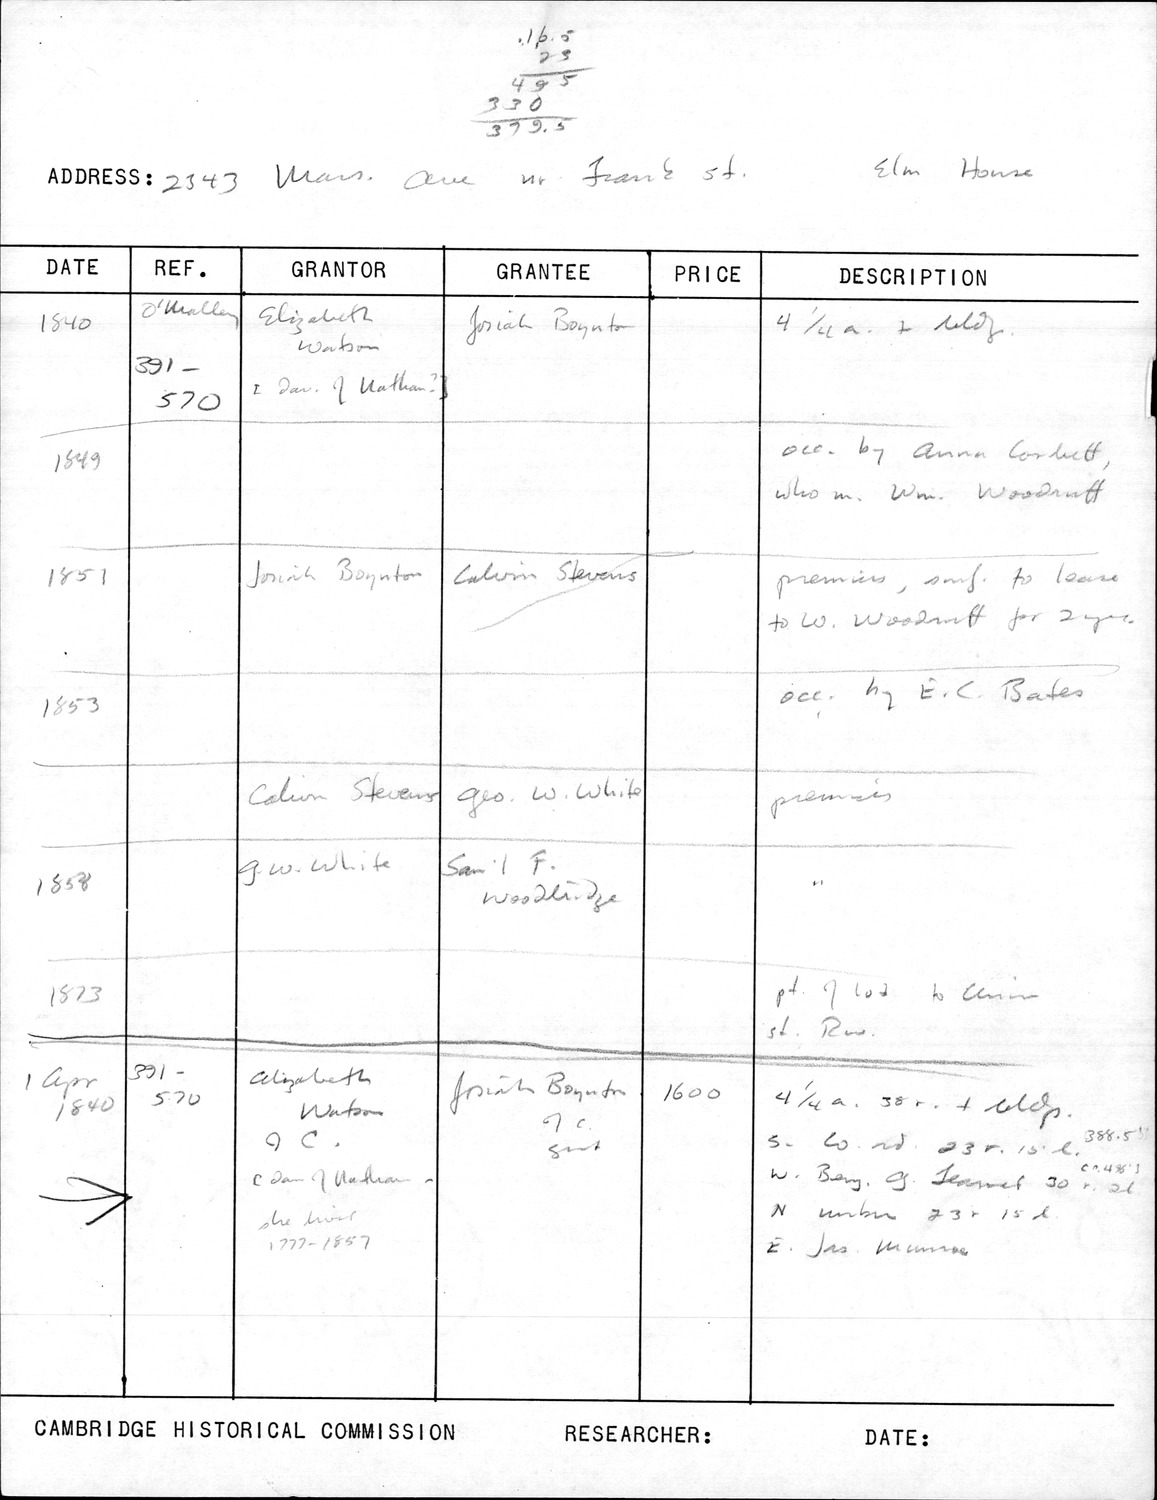 .16.5
23
495
330
379.5
ADDRESS: 2343 Mass. Ave nr Frank St. Elm House
DATE REF. GRANTOR GRANTEE PRICE DESCRIPTION
1840 O'Malley Elizabeth Josiah Boynton 4 1/4 a. + bldg.
Watson
391-
570 [Dau. of Nathan?]
1849 occ. by Anna Corbett,
who m. Wm. Woodruff
1851 Josiah Boynton Calvin Stevens premises, subj. to lease
to W. Woodruff for 2 yrs.
1853 occ. by E.C. Bates
Calvin Stevens Geo. W. White premises
1858 G.W. White Sam'l F. "
Woodbridge
1873 pt. of lot to Union
St. Rw.
1 Apr 391- Elizabeth Josiah Boynton 1600 4 1/4 a. 38 r. + bldgs.
1840 570 Watson of C.
of C. S. Co. rd. 23 r. 15 l. 388.5
[Dau of Nathan - W. Benj. G. 30 r. 2 l
she lived N 23 r 15 l.
1777-1857 E. Jas. Munroe
CAMBRIDGE HISTORICAL COMMISSION RESEARCHER: DATE: